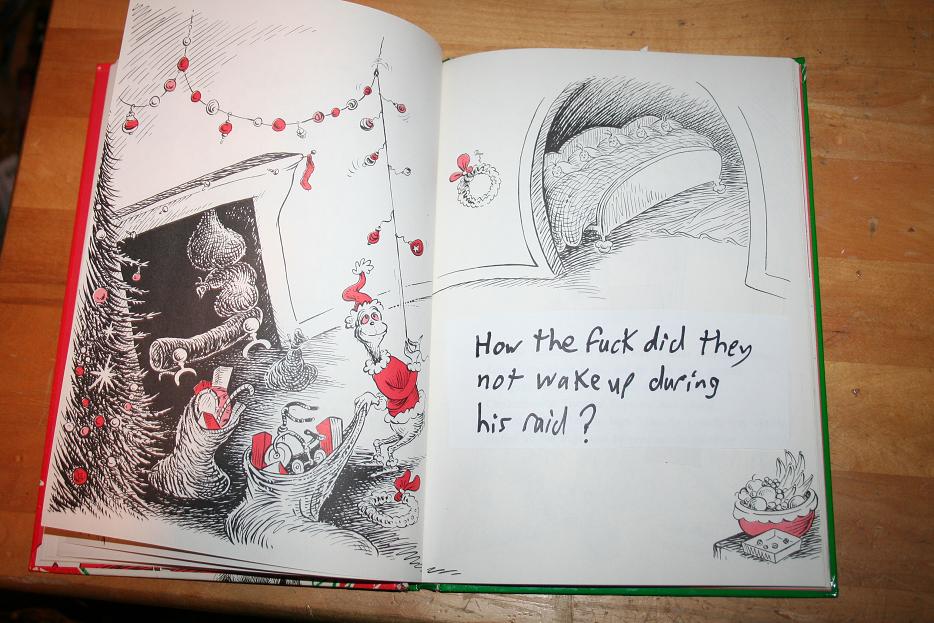 How the fuck did they
not wake up during
his raid?